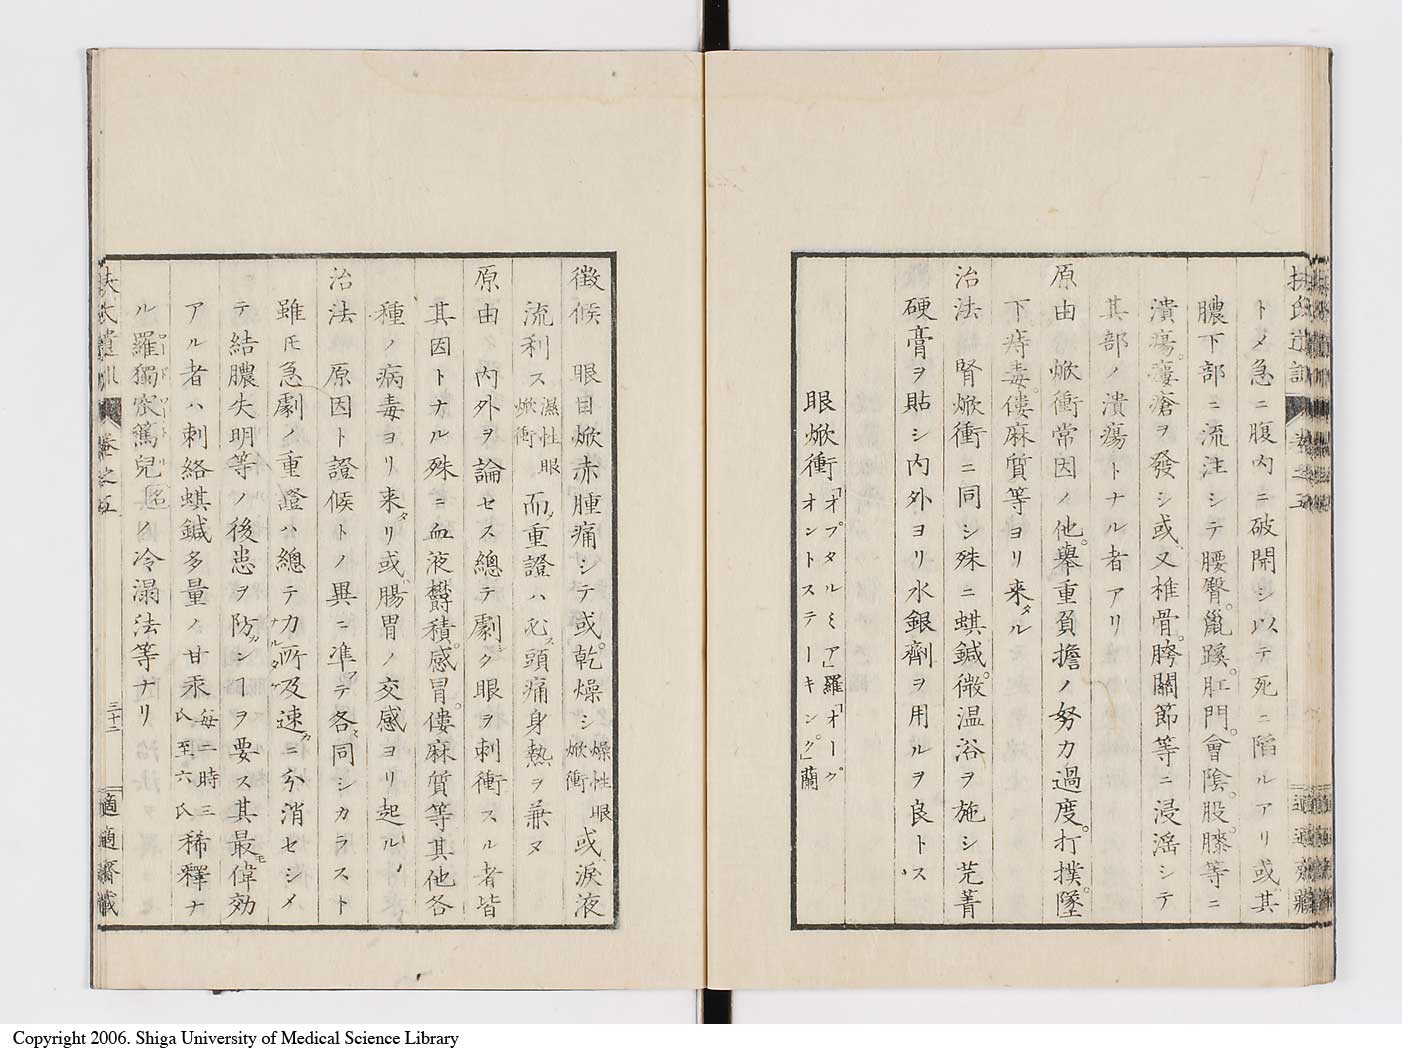 扶氏遺訓 卷之五 適適齋藏
トメ急ニ腹内ニ破開シ以テ死ニ陷ルアリ或ハ其
膿下部ニ流注シテ腰臀。鼠蹊。肛門。會陰。股膝等ニ
潰瘍。瘻瘡ヲ發シ或ハ又椎骨。胯關節等ニ浸淫シテ
其部ノ潰瘍トナル者アリ
原由 焮衝常因ノ他。擧重負擔ノ努力過度。打撲。墜
下痔毒。僂麻質等ヨリ来タル
治法 腎焮衝ニ同シ殊ニ蜞鍼。微温浴ヲ施シ芫菁
硬膏ヲ貼シ内外ヨリ水銀劑ヲ用ルヲ良トス
眼焮衝 「オプタルミア」羅「オーグオントステーキング」蘭
徴候 眼目焮赤腫痛シテ或ハ。乾燥シ 燥性眼焮衝 或ハ淚液
流利ス 濕性眼焮衝 而メ重證ハ必ス頭痛身熱ヲ兼ヌ
原由 内外ヲ論セス總テ劇シク眼ヲ刺衝スル者皆
其因トナル殊ニ血液欝積。感冒。僂麻質等其他各
種ノ病毒ヨリ来タリ或ハ腸胃ノ交感ヨリ起ル
治法 原因ト證候トノ異ニ準テ各同シカラスト
雖モ急劇ノ重證ハ總テ力ノ所及速ニ分消セシメ
テ結膿失明等ノ後患ヲ防カンヿヲ要ス其最モ偉効
アル者ハ刺絡蜞鍼多量ノ甘汞 每二時三氏至六氏 稀釋ナ
ル羅獨穵篤兒 名 ノ冷溻法等ナリ
扶氏遺訓 卷之五 三十二 適適齋藏
Copyright 2006. Shiga University of Medical Science Library